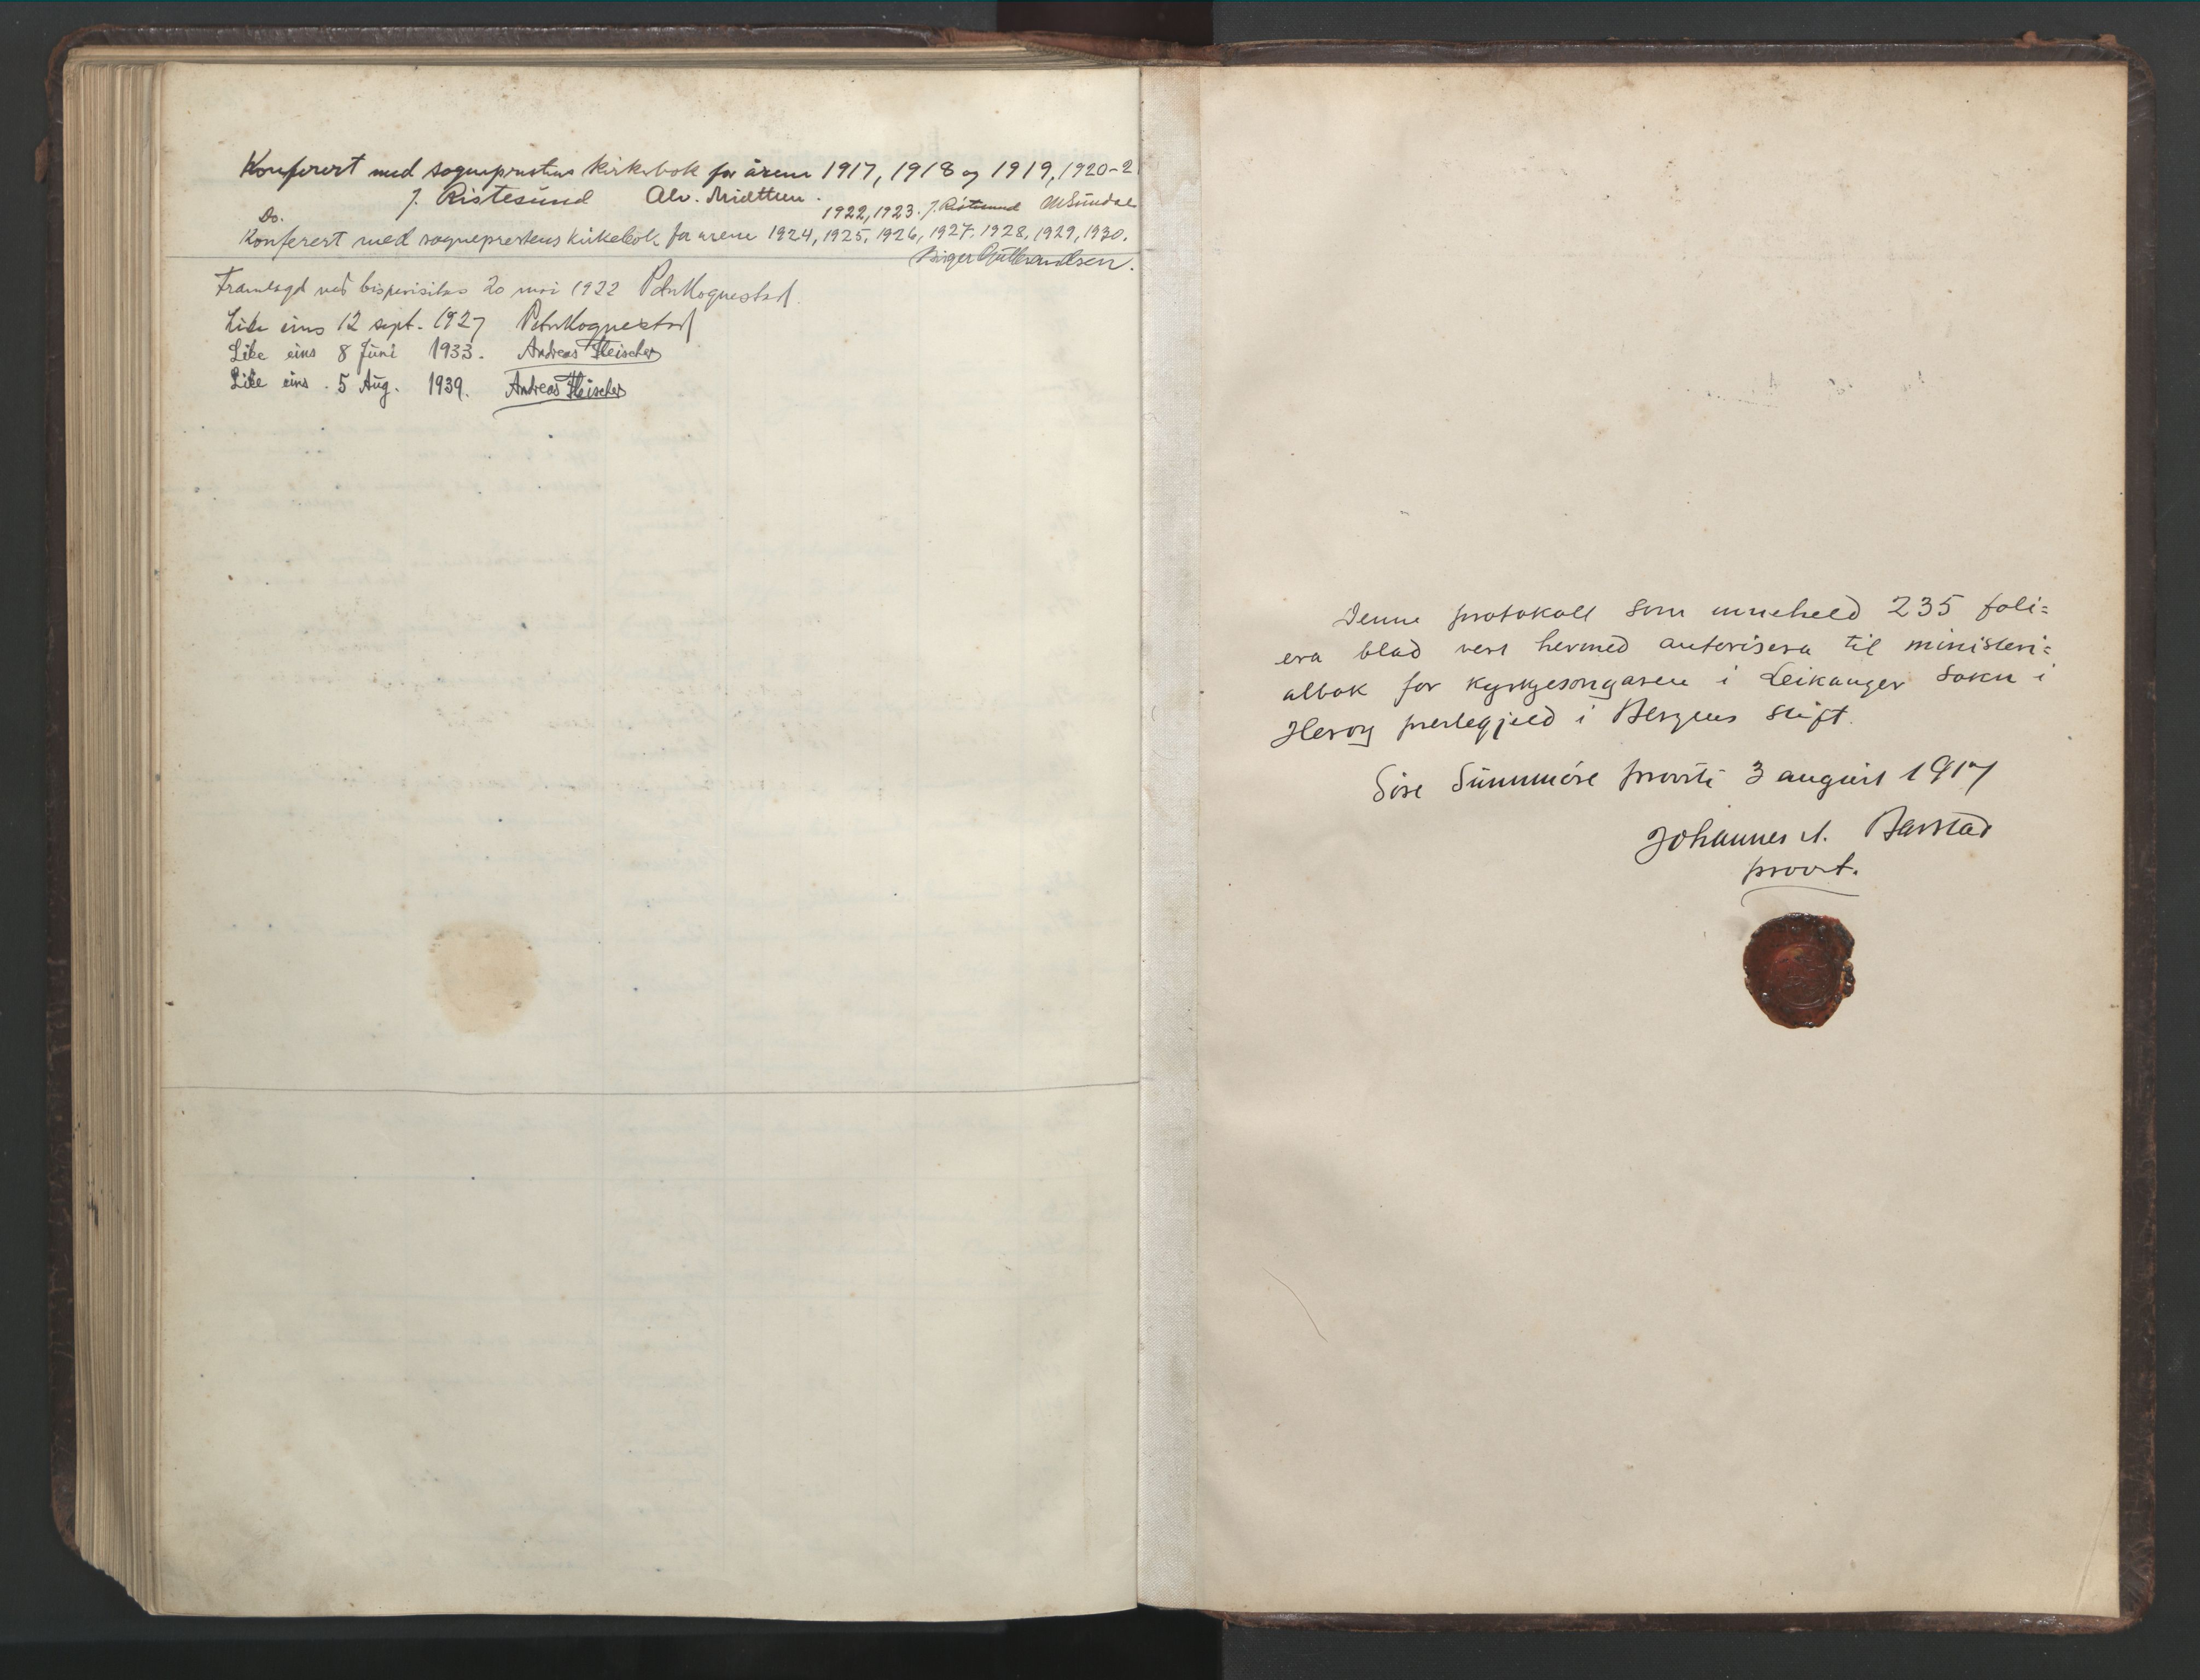 Konferert med sogneprestens kirkebok for årene 1917, 1918 og 1919, 1920-2
J. Ristesund Alv. Midttun.
Do. 1922, 1923. J. Ristesund M Sundal
Konferert med sogneprestens kirkebok for årene 1924, 1925, 1926, 1927, 1928, 1929, 1930.
Birger Gulbrandsen.
Framlagd ved bispevisitas 20 mai 1922 Peter Hognestad.
Like eins 12 sept. 1927 Peter Hognestad
Like eins 8 Juni 1933. Andreas Fleischer
Like eins . 5 Aug. 1939. Andreas Fleischer
Denne protokoll som inneheld 235 foli=
era blad vert hermed autorisera til ministeri=
albok for kyrkjesongaren i Leikanger sokn i
Herøy prestegjeld i Bergens stift.
Søre Sunnmøre prosti 3 august 1917
Johannes J. Barstad
proost.